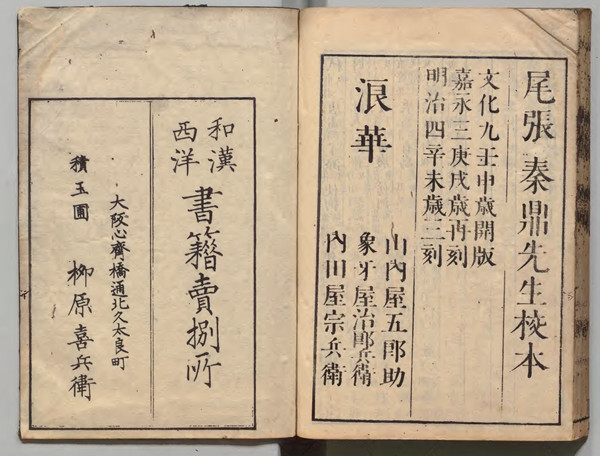 尾張 秦鼎先生校本
文化九壬申歳開版
嘉永三庚戌歳再刻
明治四辛未歳三刻
浪華
山内屋五郎助
象牙屋治郎兵衛
内田屋宗兵衛
和漢
西洋
書籍賣捌所
大阪心齋橋通北久太良町
積玉圃 柳原喜兵衛